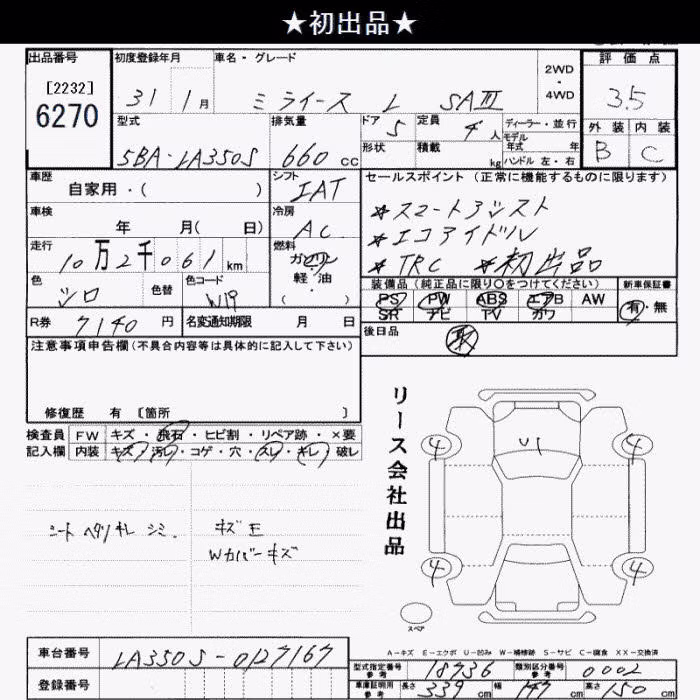 ★初出品★
出品番号 初度登録年月 車名・グレード 2WD・4WD 評価点
[2232]
6270
31 1月 ミライース L SAⅢ 3.5
型式 排気量 ドア 5 定員 4人 ディーラー・並行 外装 内装
モデル年式 年
5BA-LA350S 660cc 形状 積載 kg ハンドル 左・右 B C
車歴 シフト セールスポイント (正常に機能するものに限ります)
自家用・( ) IAT
車検 冷房 ★スマートアシスト
年 月( 日) AC ★エコアイドル
走行 燃料 ★TRC ★初出品
10万2千061km ガソリン 軽・油 ・( )
色 色替 色コード 装備品 (純正品に限り○をつけてください) 新車保証書
シロ W19 PS PW ABS エアB AW 有・無
SR ナビ TV カワ
R券 7140円 名変通知期限 月 日 後日品 取
注意事項申告欄(不具合内容等は具体的に記入して下さい)
修復歴 有 [箇所 ]
リース会社出品
検査員 FW キズ・飛石・ヒビ割・リペア跡・×要
記入欄 内装 キズ・汚レ・コゲ・穴・スレ・キレ・破レ
4 4
U1
シート ヘタリ キレ シミ. キズ E
Wカバーキズ
4 4
スペア
A-キズ E-エクボ U-凹み W-補修跡 S-サビ C-腐食 XX-交換済
車台番号 LA350S-0127167
型式指定番号 参考 18736 類別区分番号 参考 0002
登録番号 車庫証明用 参考 長さ 339cm 幅 147cm 高さ 150cm